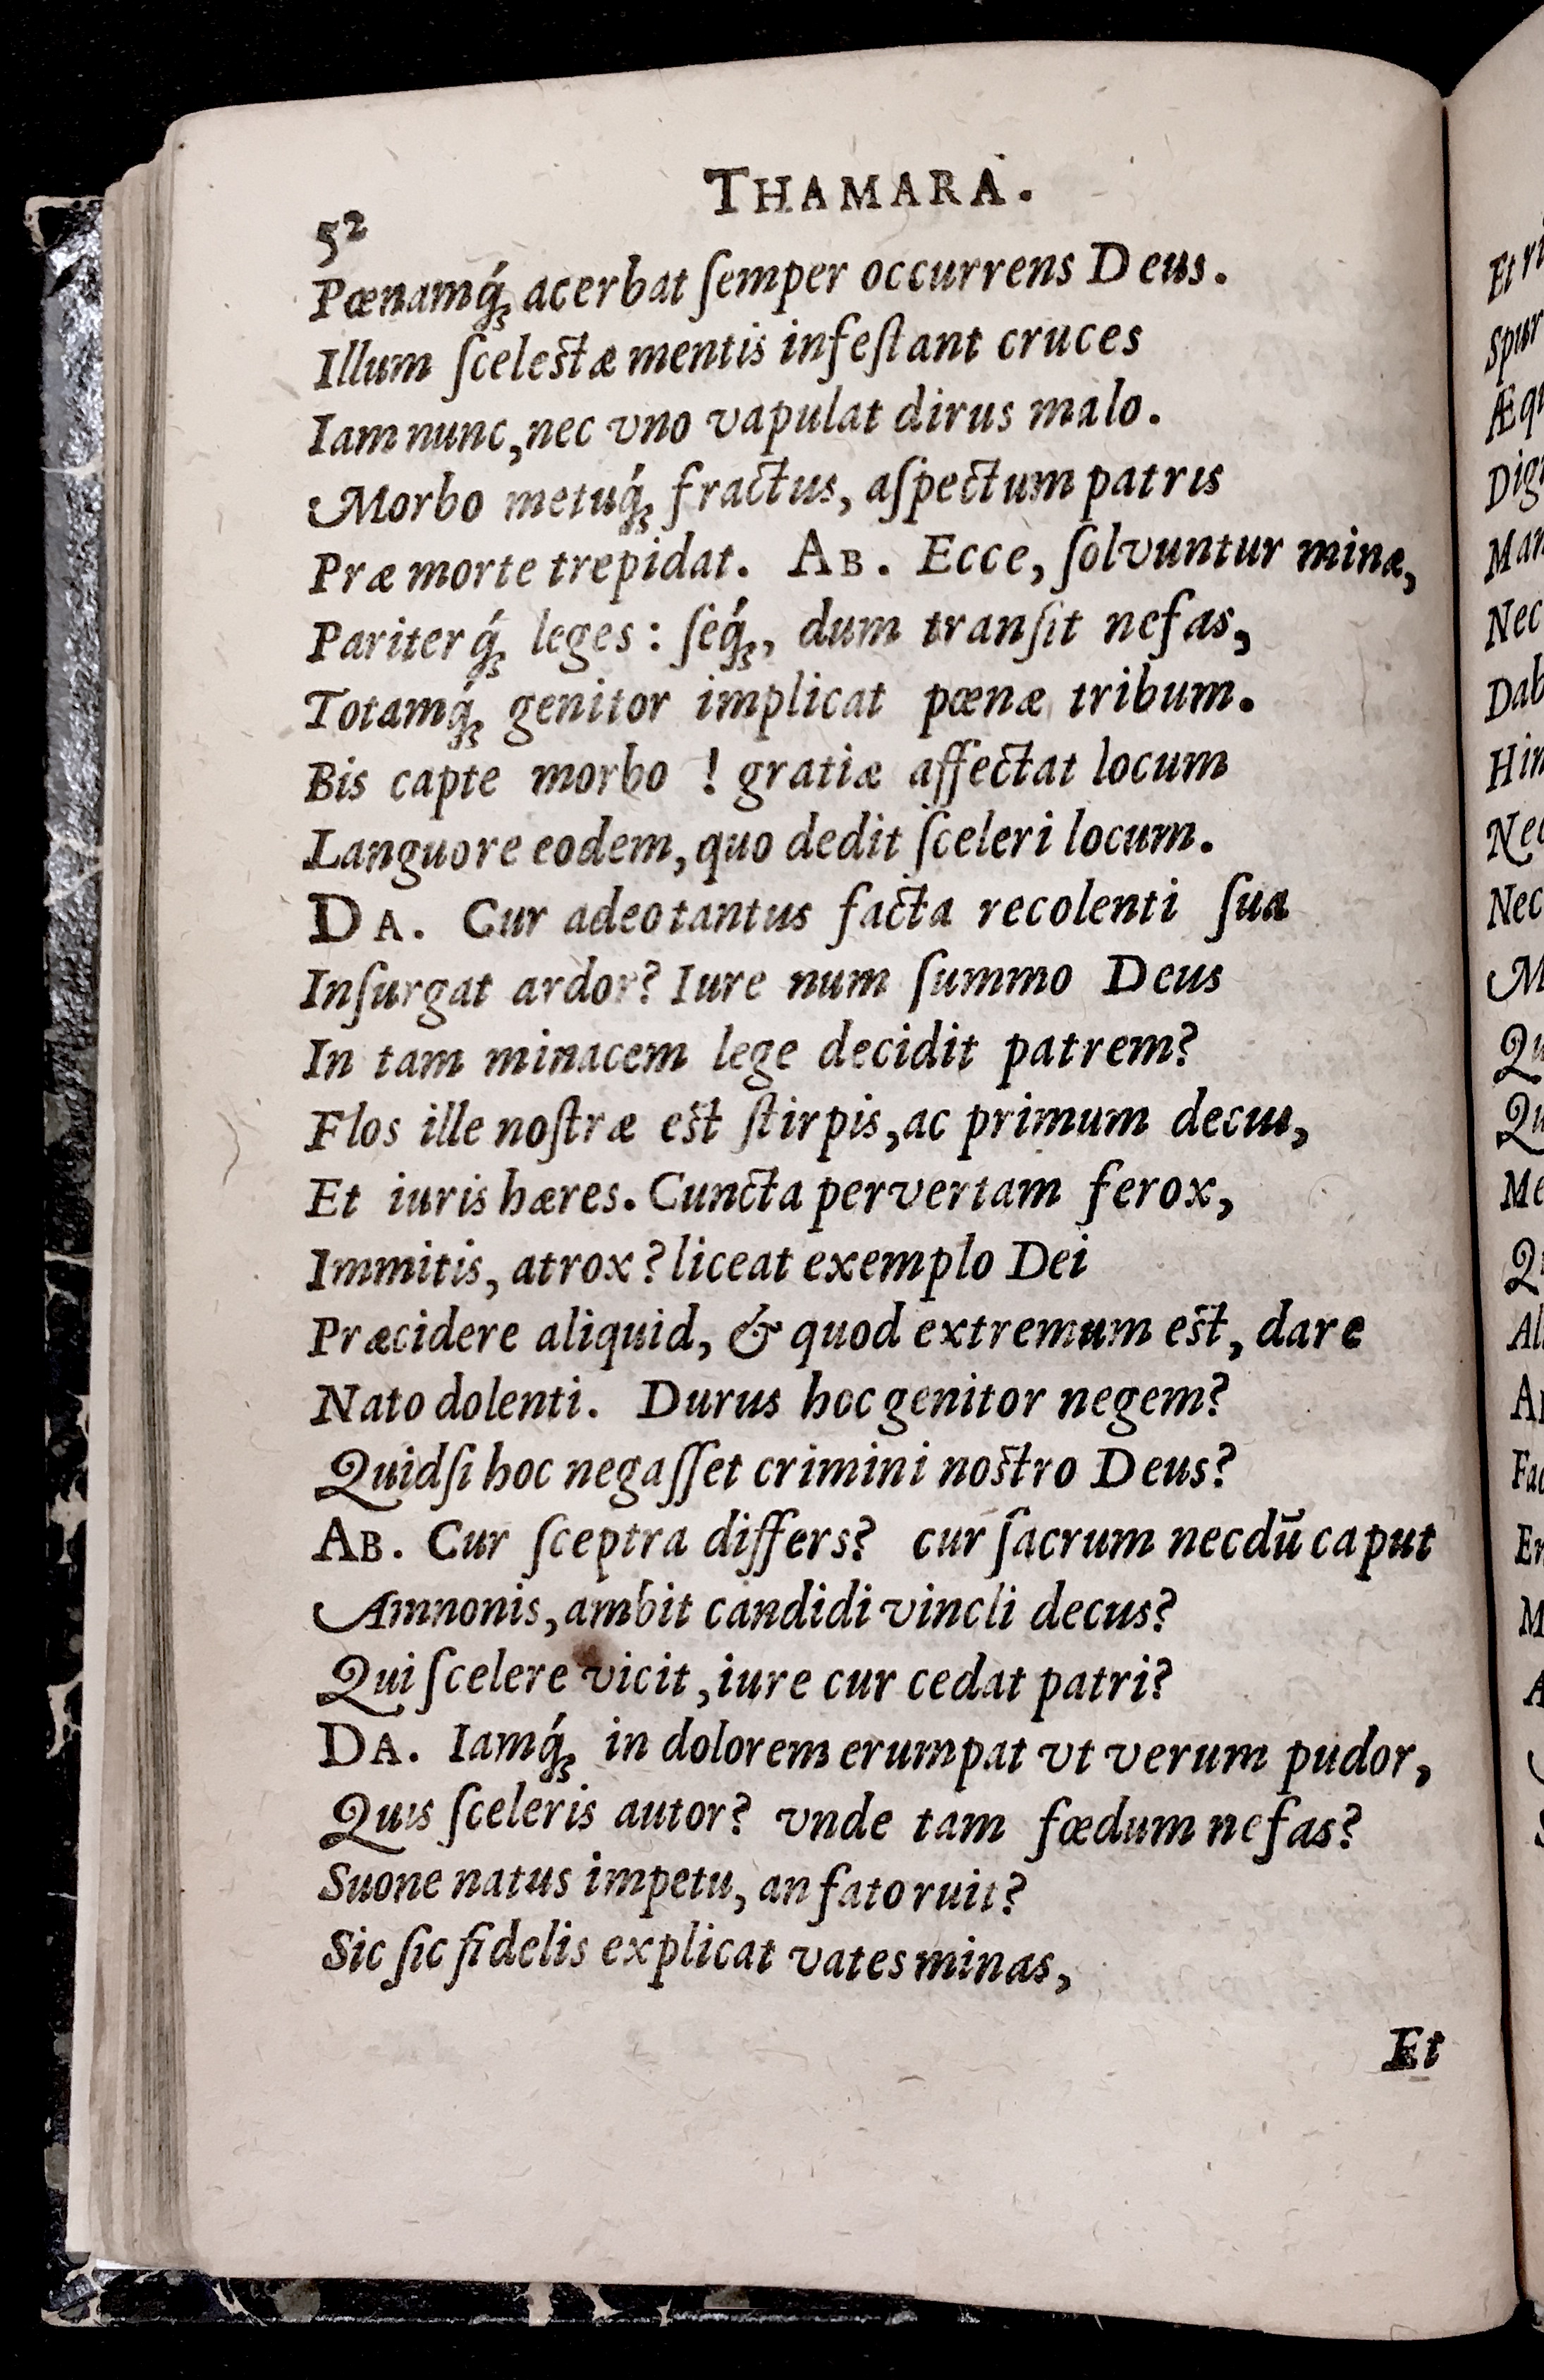 THAMARA.
52
Pœnamq́ꝫ acerbat ſemper occurrens Deus.
Illum ſceleſtæ mentis infeſtant cruces
Iam nunc, nec vno vapulat dirus malo.
Morbo metuq́ꝫ fractus, aſpectum patris
Præ morte trepidat. AB. Ecce, ſolvuntur minæ,
Pariterq́ꝫ leges: ſeq́ꝫ, dum tranſit nefas,
Totamq́ꝫ genitor implicat pœnæ tribum.
Bis capte morbo ! gratiæ affectat locum
Languore eodem, quo dedit ſceleri locum.
DA. Cur adeo tantus facta recolenti ſua
Inſurgat ardor? Iure num ſummo Deus
In tam minacem lege decidit patrem?
Flos ille noſtræ eſt ſtirpis, ac primum decus,
Et iuris hæres. Cuncta pervertam ferox,
Immitis, atrox? liceat exemplo Dei
Præcidere aliquid, & quod extremum eſt, dare
Nato dolenti. Durus hoc genitor negem?
Quid ſi hoc negaſſet crimini noſtro Deus?
AB. Cur ſceptra differs? cur ſacrum necdū caput
Amnonis, ambit candidi vincli decus?
Qui ſcelere vicit, iure cur cedat patri?
DA. Iamq́ꝫ in dolorem erumpat vt verum pudor,
Quis ſceleris autor? vnde tam fœdum nefas?
Suone natus impetu, an fato ruit?
Sic ſic fidelis explicat vates minas,
Et
Et ri
Spur
Æqu
Dig
Man
Nec
Dab
Hin
Nec
Nec
M
Qu
Qu
Me
Al
Fac